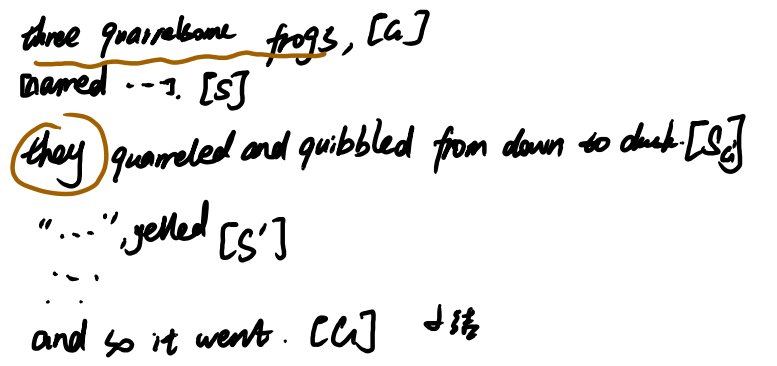 three quarrelsome frogs, [G]
[named ...]. [S]
they quarreled and quibbled from down to dusk. [SG]
"....", yelled [S']
...
and so it went. [G]